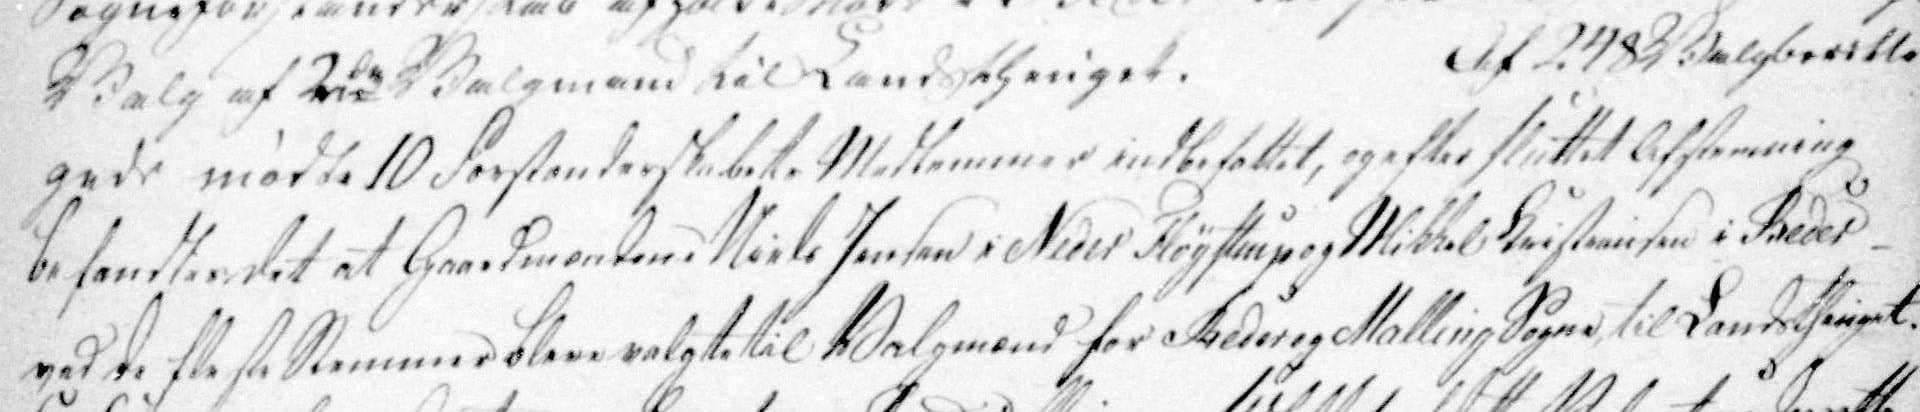 Sogneforstanderskab afholdt Møde
Valg af 2de Valgmænd til Landsthinget. Af 248 Valgberette
gede mødte 10 Forstanderskabets Medlemmer indbefattet, og efter sluttet Afstemning
befandtes det at Gaardmændene Niels Jensen i Neder Fløystrup og Mikkel Kristiansen i Beder
ved de fleste Stemmer bleve valgte til Valgmænd for Beder og Malling Sogne, til Landsthinget.